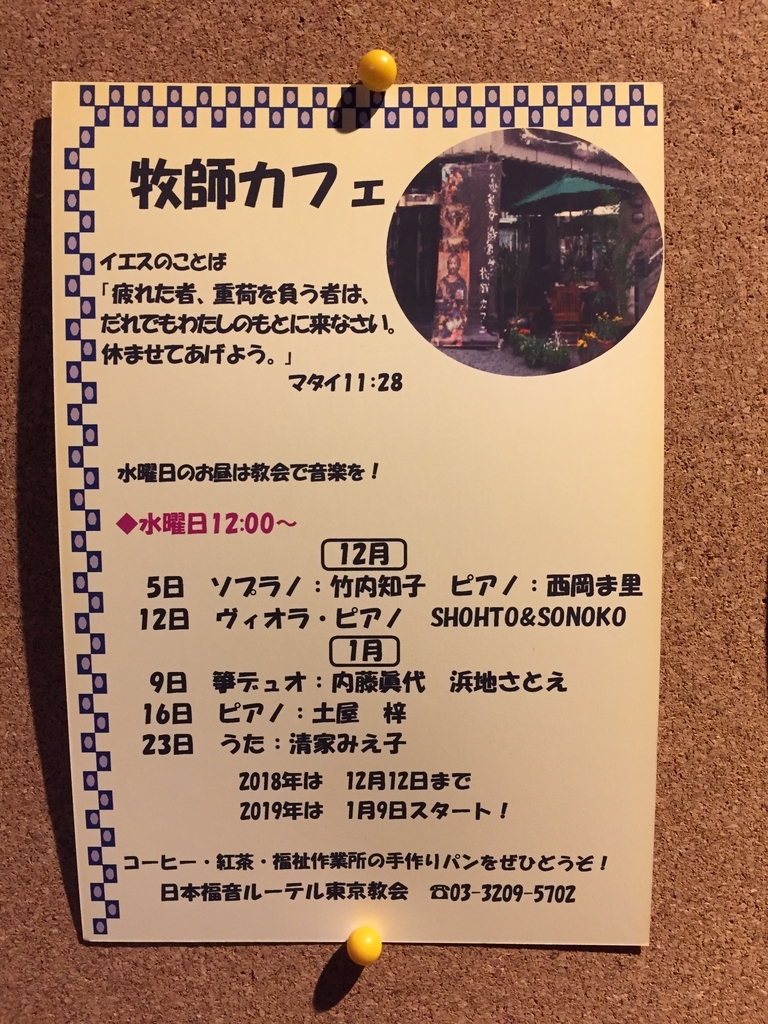 牧師カフェ
イエスのことば
「疲れた者、重荷を負う者は、
だれでもわたしのもとに来なさい。
休ませてあげよう。」
マタイ11:28
水曜日のお昼は教会で音楽を！
◆水曜日12:00～
12月
5日 ソプラノ：竹内知子 ピアノ：西岡ま里
12日 ヴィオラ・ピアノ SHOHTO&SONOKO
1月
9日 箏デュオ：内藤眞代 浜地さとえ
16日 ピアノ：土屋 梓
23日 うた：清家みえ子
2018年は 12月12日まで
2019年は 1月9日スタート！
コーヒー・紅茶・福祉作業所の手作りパンをぜひどうぞ！
日本福音ルーテル東京教会 ☎03-3209-5702